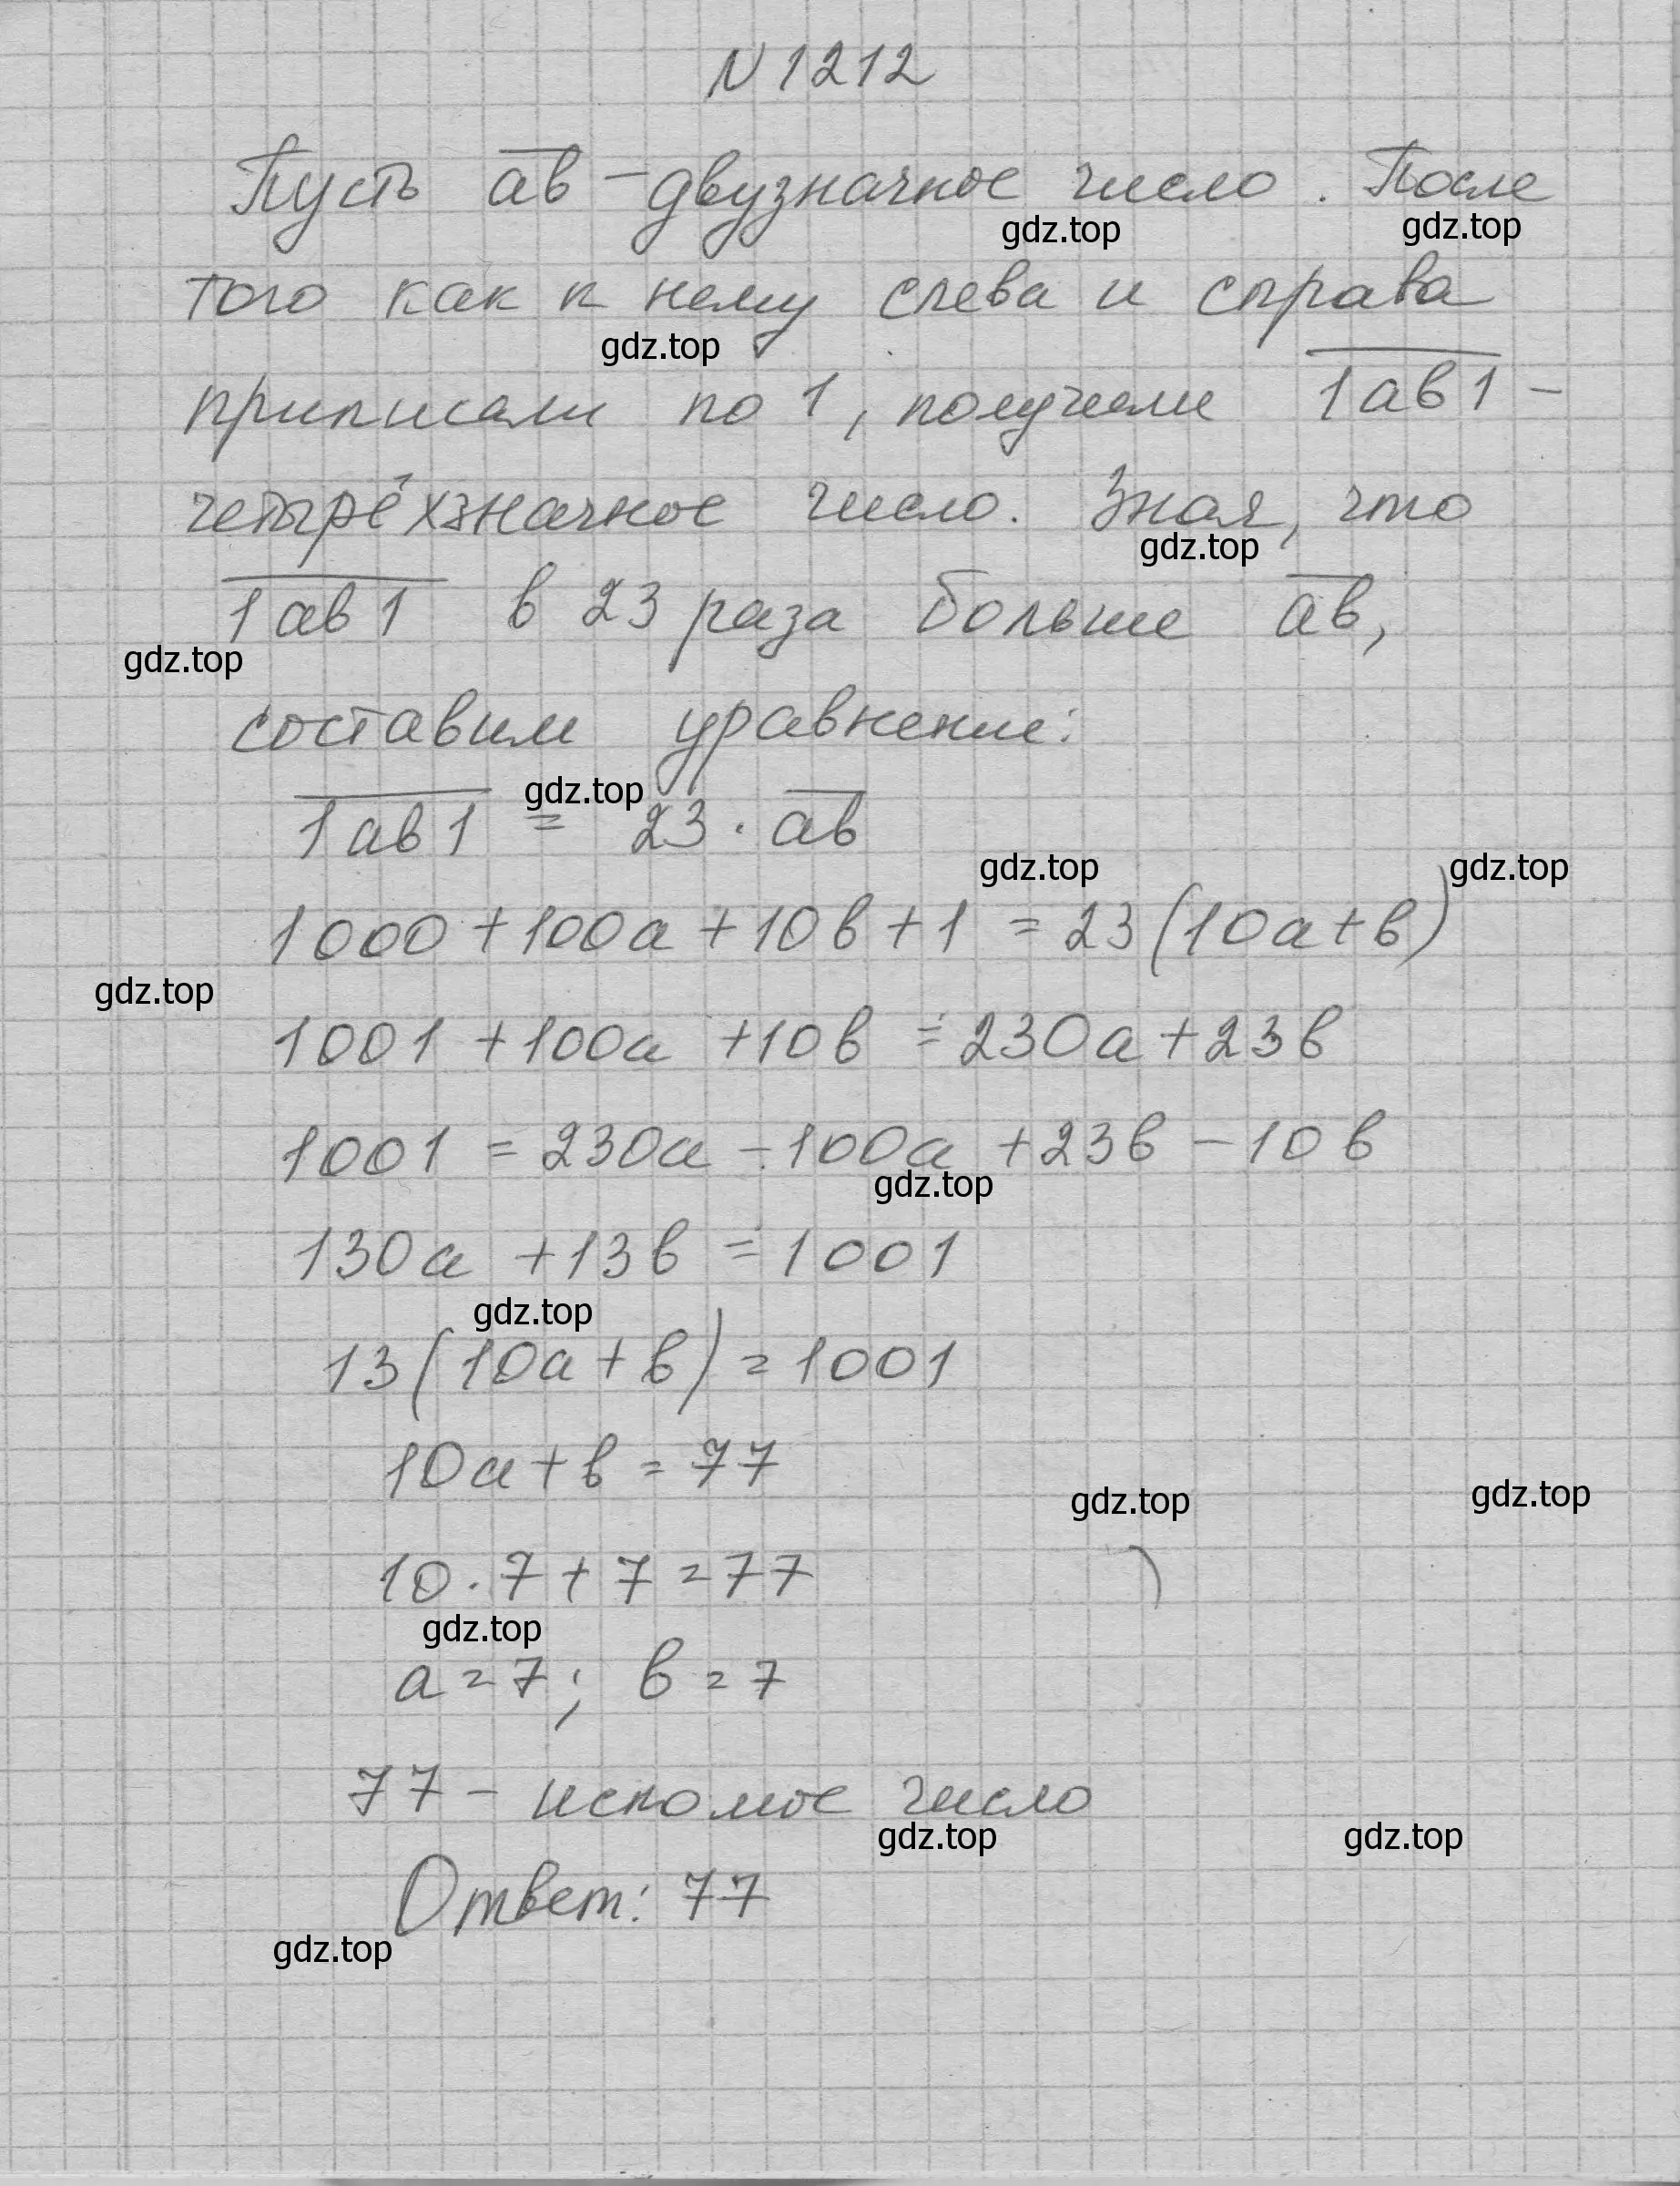 N 1212
Пусть ав - двузначное число. После
gdz.top gdz.top
того как к нему слева и справа
gdz.top
приписали по 1, получили 1ав1 -
четырёхзначное число. Зная, что
gdz.top
1ав1 в 23 раза больше ав,
gdz.top
составим уравнение:
gdz.top
1ав1 = 23 · ав
gdz.top gdz.top
1000 + 100а + 10в + 1 = 23 (10а + в)
gdz.top
1001 + 100а + 10в = 230а + 23в
1001 = 230а - 100а + 23в - 10в
gdz.top
130а + 13в = 1001
gdz.top
13 (10а + в) = 1001
10а + в = 77
gdz.top gdz.top
10 · 7 + 7 = 77
gdz.top
а = 7; в = 7
77 - искомое число
gdz.top gdz.top
Ответ: 77
gdz.top